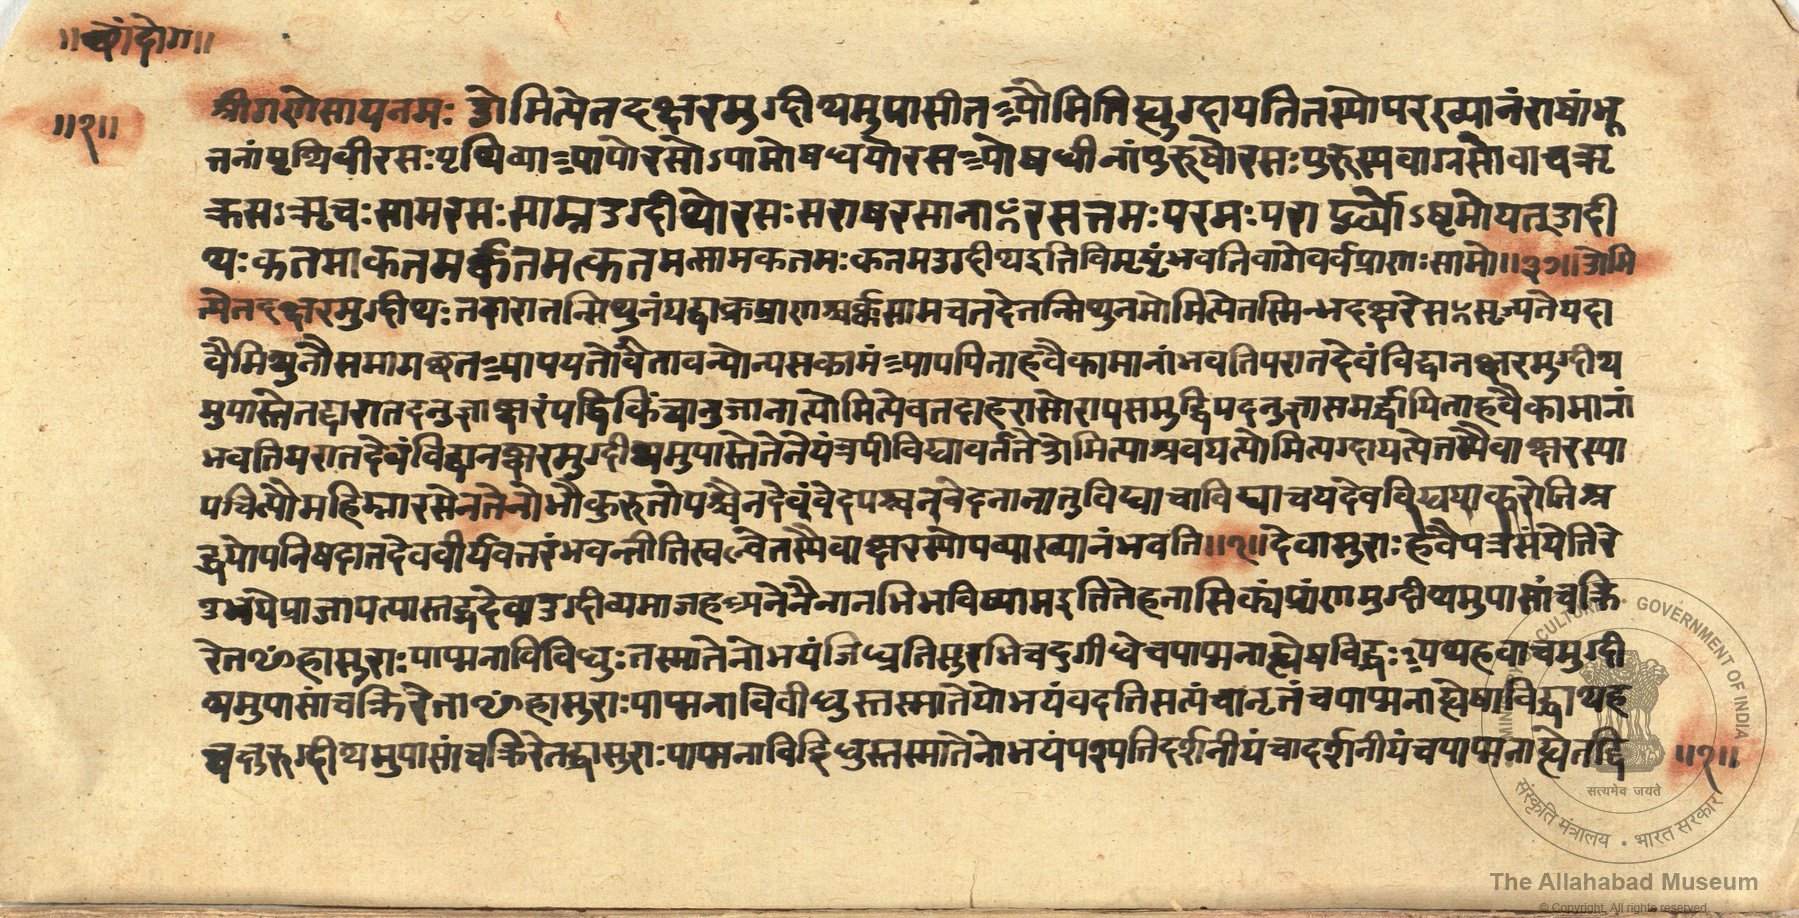 ॥छांदोग॥
॥१॥
श्रीगणेसायनमः ओमित्येतदक्षरमुग्दीथमुपासीत ओमितिह्युग्दायतितस्योपरव्याख्यानंराषांभू
तानांपृथिवीरसः पृथिव्याआपोरसोऽपामोषधयोरसओषधीनांपुरुषोरसः पुरुस्पवाग्रसोवाचऋ
क्रसऽऋचः सामरसः साम्नउग्दीथोरसः सराषरसानाꣳरसत्तमः परमः पराद्धर्योऽष्टमोयत्उग्दी
थः कतमाकतमर्क्कतमत्कतमत्सामकतमः कतमउग्दीथइतिविमृष्टंभवतिवागेवर्क्प्राणः सामो॥३७॥ओमि
त्येतदक्षरमुग्दीथः तवारातन्मिथुनंयद्वाक्कप्राणश्चर्क्कसामचतदेतन्मिथुनमोमित्येतस्मिन्भदक्षरेसꣳसृज्यतेयदा
वैमिथुनौसमागच्छतआपयतोवैतावन्योन्यसकामंआपयिताहवैकामानांभवतिपरातदेवंविद्वानक्षरमुग्दीथ
मुपास्तेतद्वारातदनुज्ञाक्षरंयद्धिकिंचानुजानात्योमित्येवतदाहरासोरापसमुद्धिपदनुज्ञासमर्द्धयिताहवैकामानां
भवतियरातदेवंविद्वानक्षरमुग्दीथमुपास्तेतेनेयंत्रयीविद्यावर्ततेओमित्याश्रवयत्योमित्यग्दायत्येतस्यैवाक्षरस्या
पचित्यौमहिम्नारसेनतेनोभौकुरुतोयश्चैतदेवंवेदयश्चनवेदनानातुविद्याचाविद्याचयदेवविद्ययाकरोतिश्र
द्धयोपनिषदातदेववीर्यवत्तरंभवन्तीतिखल्वेतस्यैवाक्षरस्योपव्याख्यानंभवति॥१॥देवासुराः हवैयत्रसंयेतिरे
उभयेप्राजापत्यास्तद्धदेवाउग्दीथमाजहध्रनेनैनानभिभविष्यामइतितेहनासिक्यंप्राणमुग्दीथमुपासांचक्रि
रेतꣳहासुराः पाप्मनाविविधुः तस्मातेनोभयंजिघ्रतिसुरभिचदुर्गीधेचपाप्मनाह्येषविद्धः अथहवाचमुग्दी
थमुपासांचक्रिरेताꣳहासुराः पाप्मनाविवीधुस्तस्मातेयोभयंवदतिसत्यंचानृतंचपाप्मनाह्येषाविद्धाथह
चक्षुरुग्दीथमुपासांचक्रिरेतद्धासुराः पाप्मनाविद्दिधुस्तस्मातेनोभयंपश्यतिदर्शनीयंचादर्शनीयंचपाप्मनाह्येतद्धि
॥१॥
MINISTRY OF CULTURE • GOVERNMENT OF INDIA
सत्यमेव जयते
संस्कृति मंत्रालय • भारत सरकार
The Allahabad Museum
© Copyright. All rights reserved.